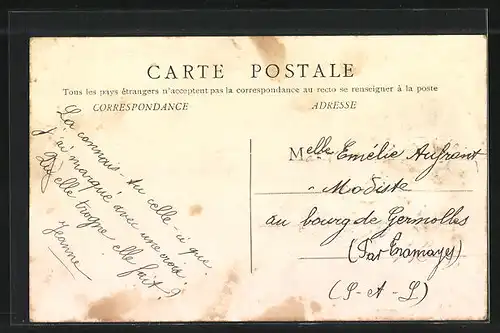 CARTE POSTALE
Tous les pays étrangers n'acceptent pas la correspondance au recto se renseigner à la poste
CORRESPONDANCE
ADRESSE
La connais-tu celle-ci que
j'ai marqué avec une croix.
elle trogne elle fait ?
Jeanne
Melle Emélie Aufrant
Modiste
au bourg de Germolles
(Par Tramayes)
(S-A-L)